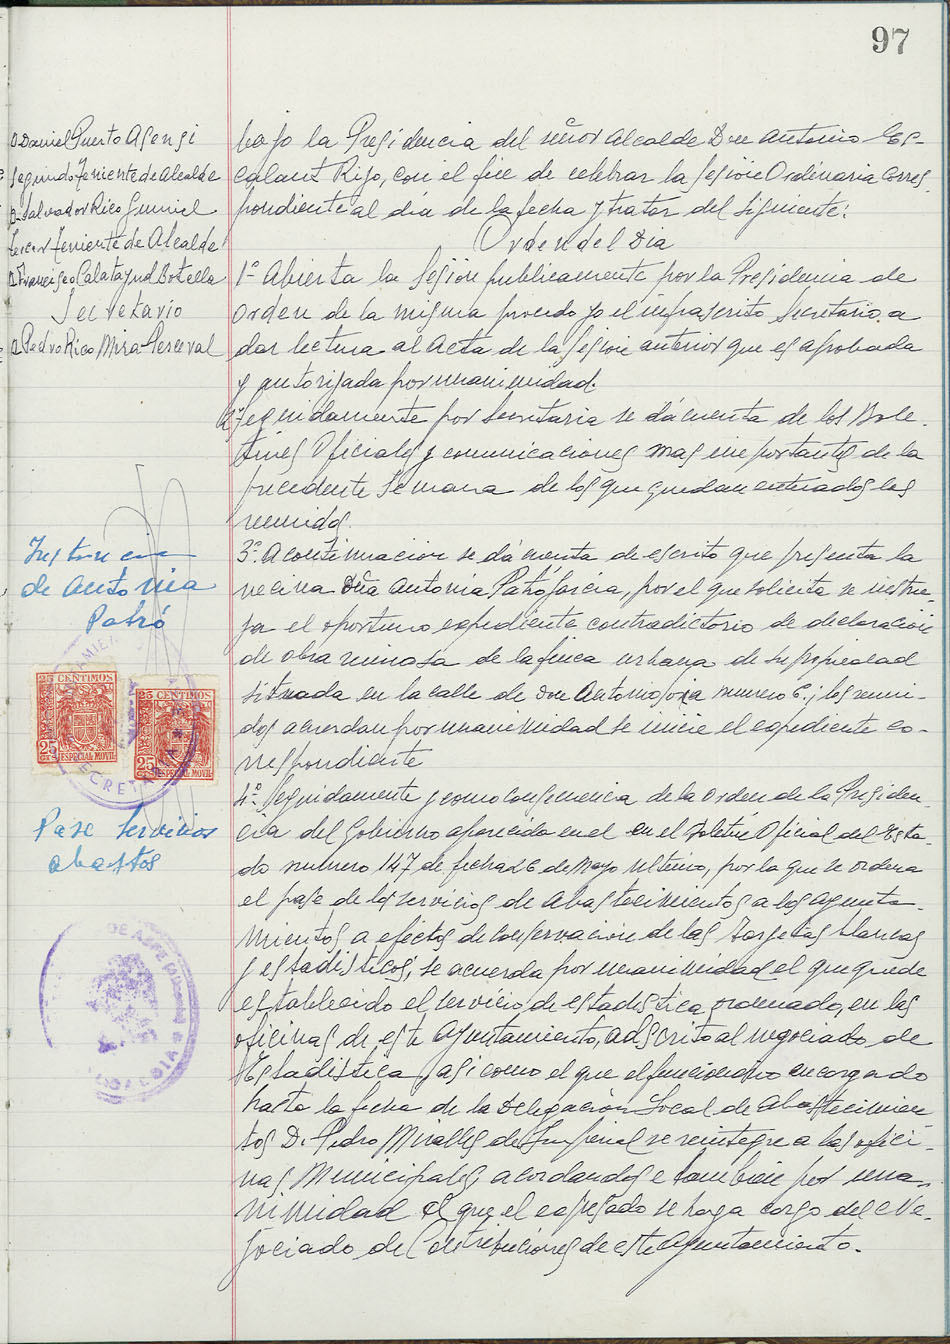 97
D Daniel Puerto Asensi
Segundo Teniente de Alcalde
D. Salvador Rico
Tercer Teniente de Alcalde
D Francisco Calatayud Botella
Secretario
D Pedro Rico Mira Perceval
bajo la Presidencia del señor Alcalde Don Antonio Es-
calant Rizo, con el fin de celebrar la sesion Ordinaria corres-
pondiente al dia de la fecha y tratar del siguiente:
Orden del Dia
1º Abierta la Sesion publicamente por la Presidencia de
orden de la misma procedo yo el infrascrito Secretario a
dar lectura al Acta de la sesion anterior que es aprobada
y autorizada por unanimidad.
2º Seguidamente por Secretaria se dá cuenta de los Bole-
tines Oficiales y comunicaciones mas importantes de la
precedente Semana de los que quedan enterados los
reunidos.
Instancia
de Antonia
Patró
3º A continuacion se dá cuenta de escrito que presenta la
vecina Dña Antonia Patró Garcia, por el que solicita se instru-
ya el oportuno expediente contradictorio de declaración
de obra ruinosa de la finca urbana de su propiedad
situada en la calle de Don Antonio numero 6.; los reuni-
dos acuerdan por unanimidad se inicie el expediente co-
rrespondiente
25 CENTIMOS
25
ESPECIAL MOVIL
25 CENTIMOS
25
ESPECIAL MOVIL
SECRETARIA
Pase Servicios
abastos
4º Seguidamente y como consecuencia de la Orden de la Presiden-
cia del Gobierno aparecida en el en el Boletin Oficial del Esta-
do numero 147 de fecha 26 de Mayo ultimo, por la que se ordena
el pase de los servicios de Abastecimientos a los Ayunta-
mientos a efectos de conservacion de las Tarjetas blancas
y estadisticos, se acuerda por unanimidad el que quede
establecido el servicio de estadistica ordenado, en las
oficinas de este Ayuntamiento, adscrito al negociado de
Estadistica, asi como el que el funcionario encargado
hasta la fecha de la Delegacion Local de Abastecimien-
tos D. Pedro Miralles de Imperial se reintegre a las ofici-
nas Municipales, acordandose tambien por una-
nimidad el que el expresado se haga cargo del Ne-
gociado de Contribuciones de este Ayuntamiento.
ALCALDIA